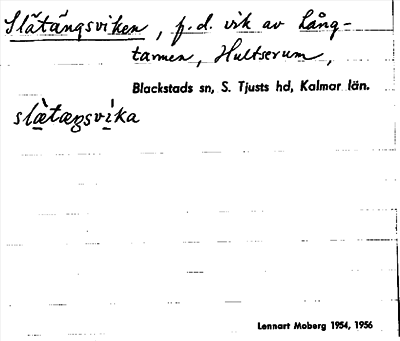 Slätängsviken, f.d. vik av Lång-
tarmen, Hultserum,
Blackstads sn, S. Tjusts hd, Kalmar län.
slæ̀tæŋsvìka
Lennart Moberg 1954, 1956